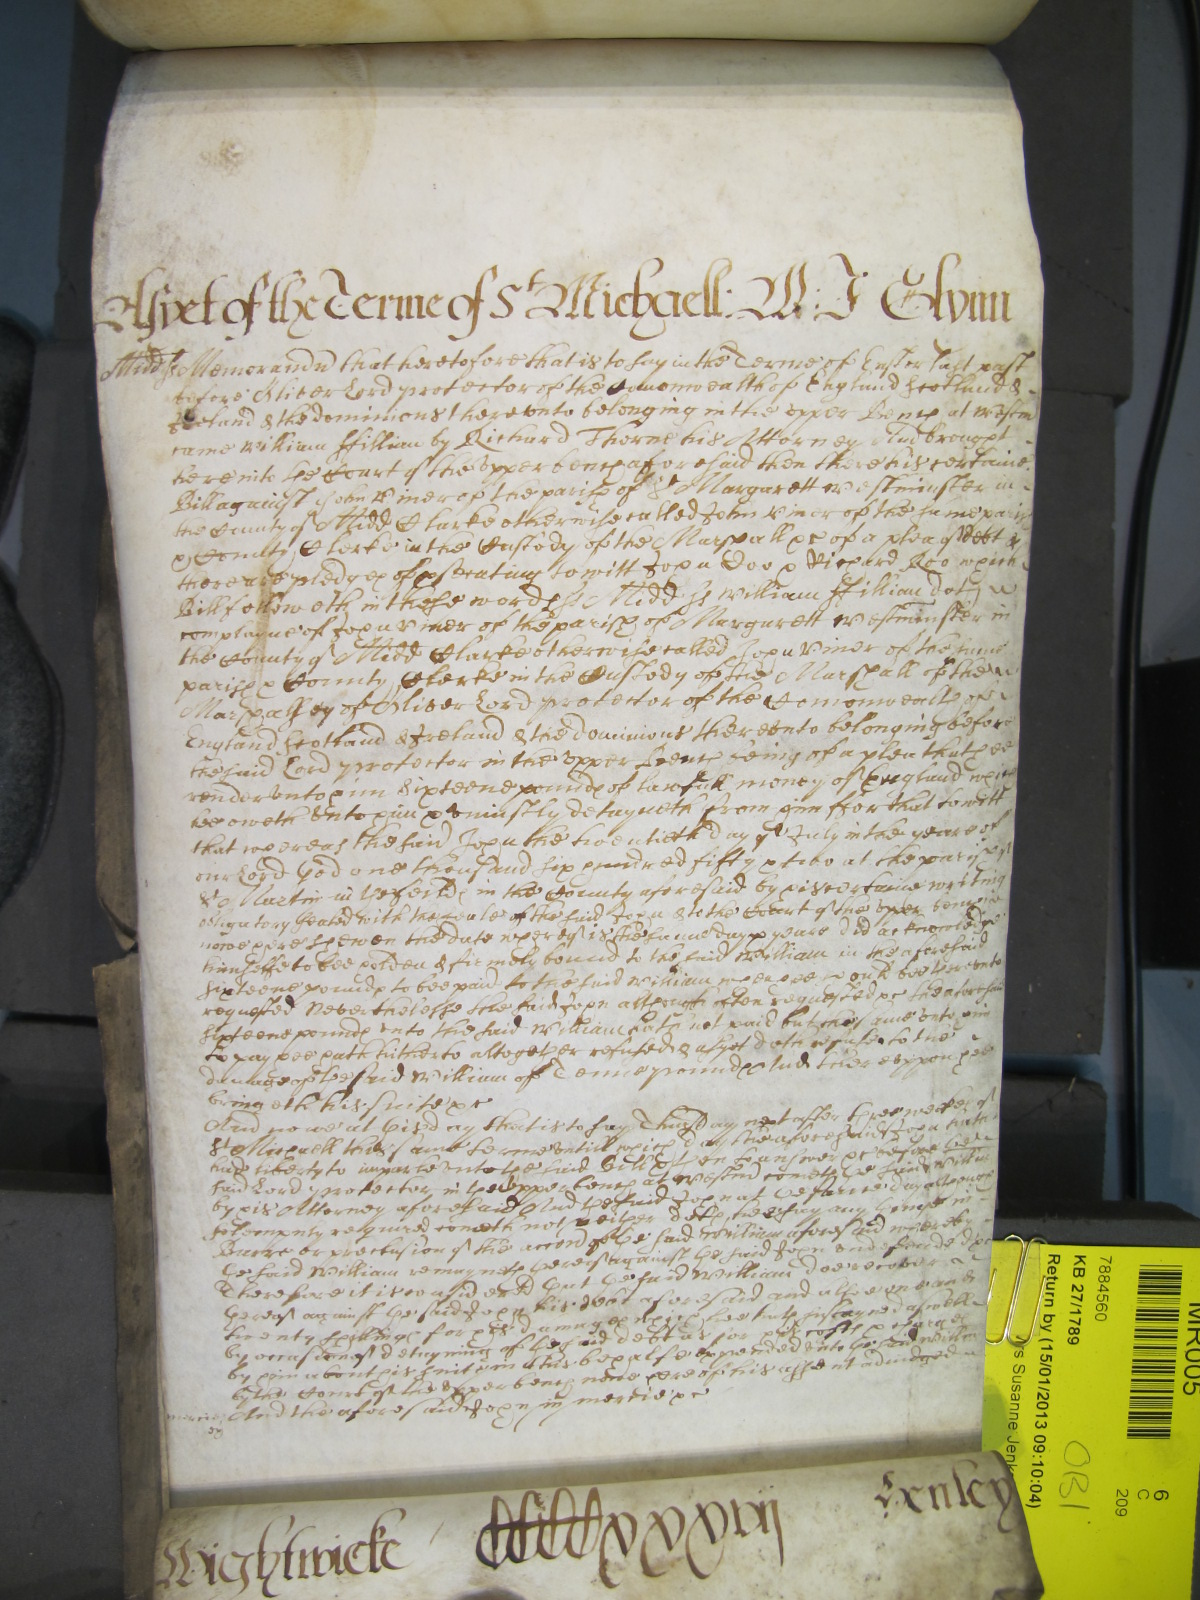 As yet of the Terme of St Michaell: W: J Glynn
Midd ss Memorandu that heretofore that is to say in the Terme of Easter last past
before Oliver Lord protector of the Comonwealth of England Scotland &
Ireland & the dominions thereunto belonging in the upper Bench at Westm
came William Hillian by Richard Thorne his Attorney And brought
here into the Court of the upper bench aforesaid then there his certaine
Bill against John Viner of the parish of St Margarett Westminster in
the County of Midd Clarke otherwise called John Viner of the same parish
& County Clerke in the Custody of the Marshall &c of a plea of debt &
there are pledges of psecuting to witt John Doo & Richard Roo which
Bill followeth in these words ss Midd ss William Hillian doth
complayne of John Viner of the parish of Margarett Westminster in
the County of Midd Clarke otherwise called John Viner of the same
parish & County Clerke in the Custody of the Marshall of the
Marshalsey of Oliver Lord protector of the Comonwealth of
England Scotland & Ireland & the dominions thereunto belonging before
the said Lord protector in the upper Bench being of a plea that hee
render unto him sixteene pounds of lawfull money of England which
hee oweth unto him & uniustly detayneth from him ffor that to witt
that whereas the said John the twentieth day of July in the yeare of
our Lord God one thousand six hundred fifty & two at the parish of
St Martin in the feilds in the County aforesaid by his certaine writing
obligatory sealed with the seale of the said John & to the Court of the upper bench
nowe here shewen the date whereof is the same day & yeare did acknowledge
himselfe to bee holden & firmely bound to the said William in the aforesaid
sixteene pounds to bee paid to the said William when hee should bee thereunto
requested Neverthelesse the said John although often requested &c the aforesaid
sixteene pounds unto the said William hath not paid but the same unto him
to pay hee hath hitherto altogether refused & as yet doth refuse to the
damage of the said William of Tenne pounds And thereuppon hee
bringeth this suite &c
And nowe at this day that is to say Thursday next after three weekes of
St Michaell this same terme untill which day the aforesaid John
had liberty to imparle unto the said Bill & then to answer &c before the
said Lord protector in the upper bench at Westm cometh the said William
by his Attorney aforesaid And the said John at the same day although
solempnly required cometh not neither doth hee say any thinge in
Barre or preclusion of the accon of the said William aforesaid whereby
the said William remayneth thereof against the said John
Therefore it is considered that the said William doe recover
thereof against the said John his debt aforesaid and alsoe
twenty shillings for his damages which hee hath susteyned aswell
by occasion of detayning of the said debt as for his costs & charges
by him about his suite in this behalfe expended unto the said William
by the Court of the upper bench nowe here of his assent adiudged
And the aforesaid John in mercie &c
Wightwicke xxxvij Henley
MR005
6
C
209
7884560
KB 27/1789
Return by (15/01/2013 09:10:04)
Susanne Jenk
OB1